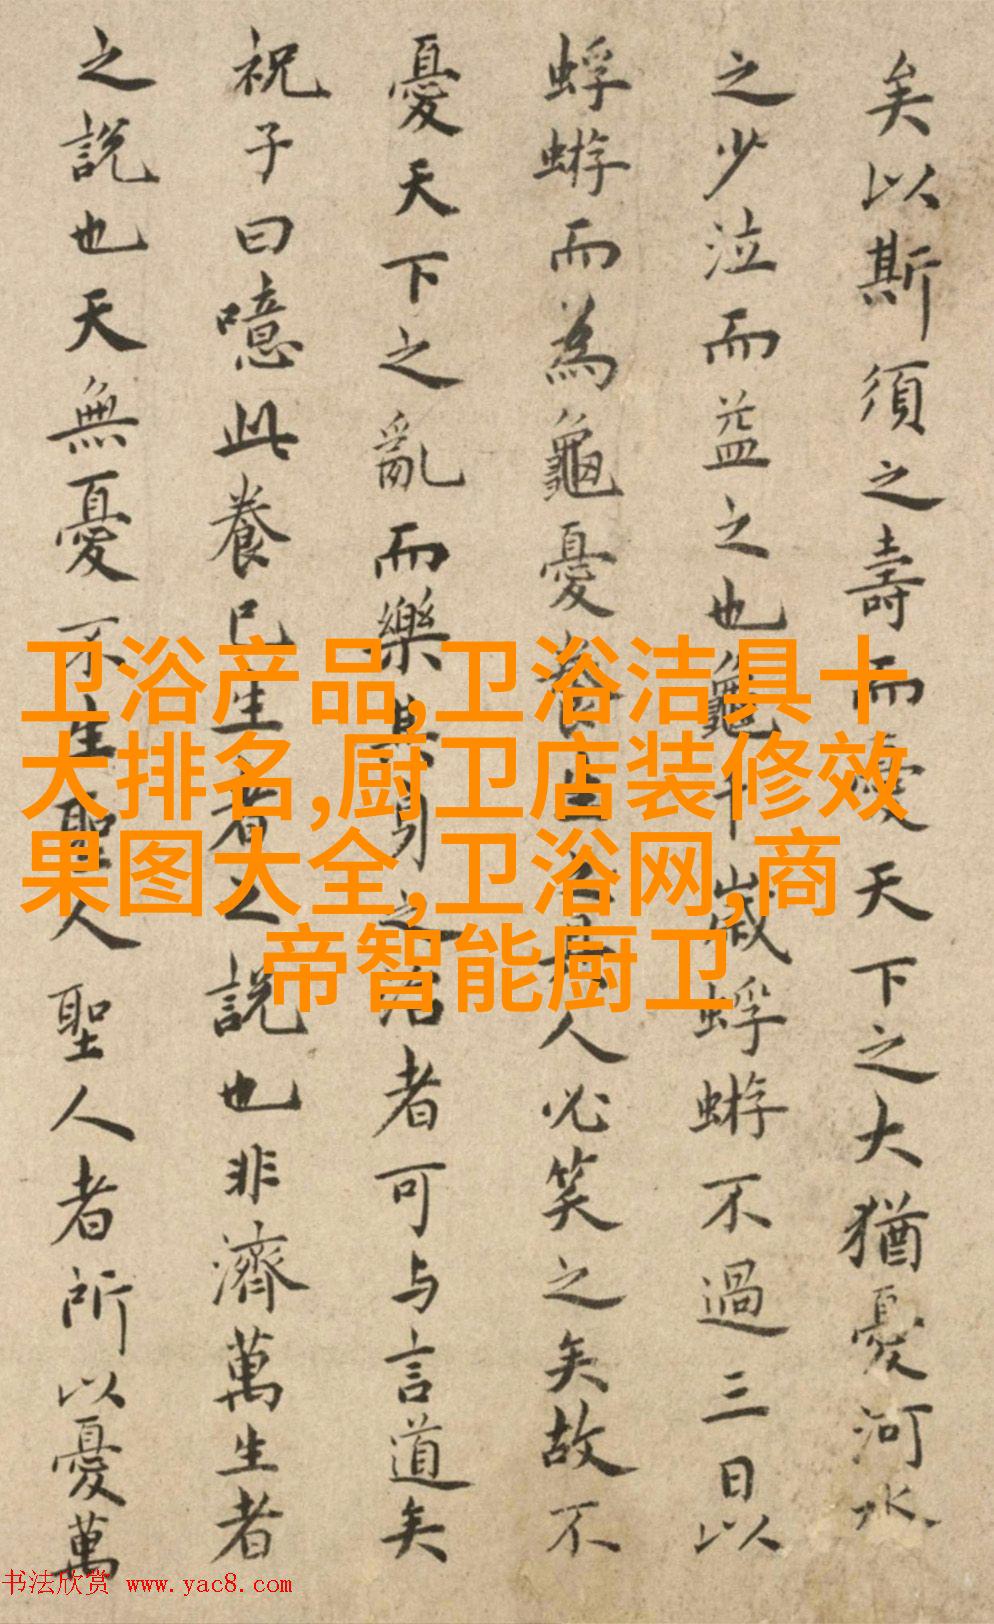 矣以斯須之壽而憂天下之大猶憂河水
之少泣而益之也龜千歲蜉蝣不過三日以
蜉蝣而為龜憂養生之具人必笑之矣故不
憂天下之亂而樂其身之治者可与言道矣
祝子曰噫此養已生者之說也非濟萬生者
之說也天無憂不生聖人聖人者所以憂萬
卫浴产品,卫浴洁具十
大排名,厨卫店装修效
果图大全,卫浴网,商
帝智能厨卫
书法欣赏 www.yac8.com